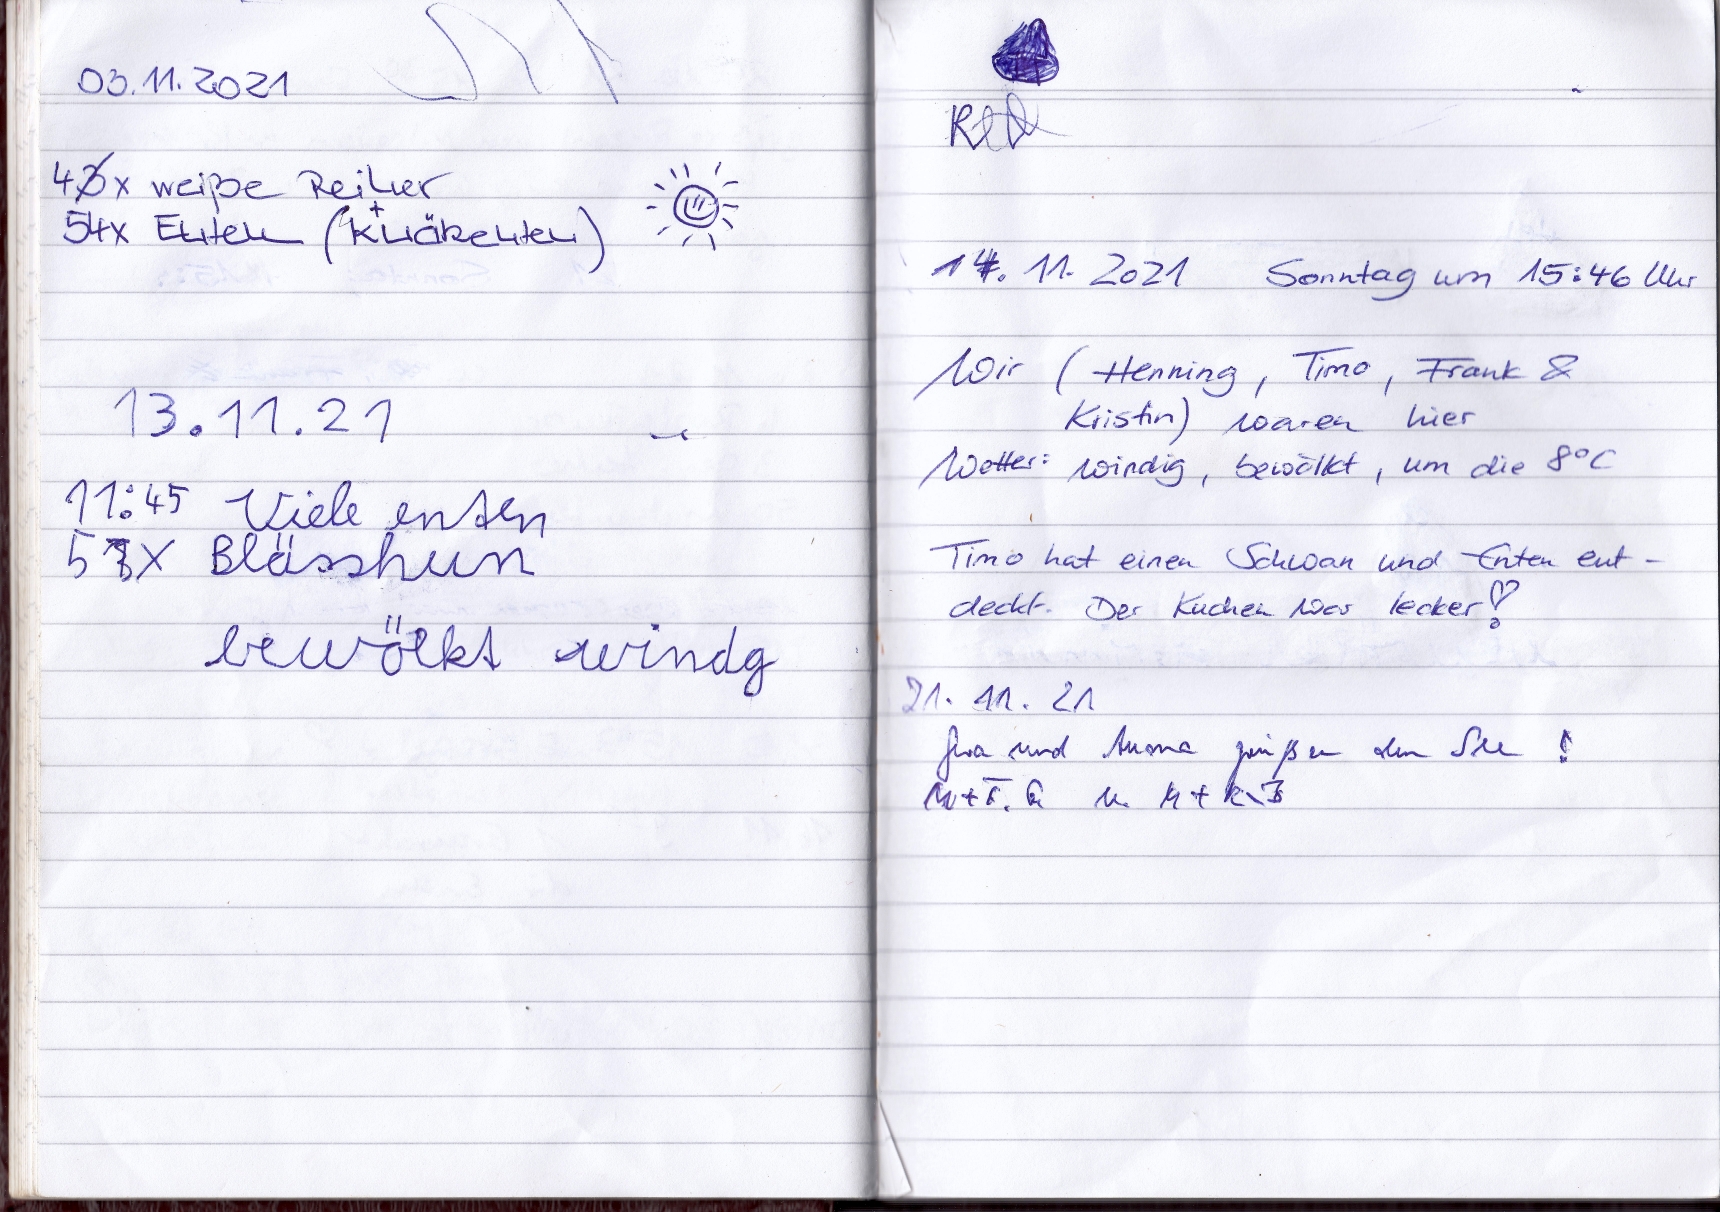 03.11.2021
4x weiße Reiher
54x Enten (+ Knäkenten)
13.11.21
11:45 Viele enten
5x Blässhun
bewölkt windg
14.11.2021 Sonntag um 15:46 Uhr
Wir (Henning, Timo, Frank &
Kristin) waren hier
Wetter: windig, bewölkt, um die 8°C
Timo hat einen Schwan und Enten ent-
deckt. Der Kuchen war lecker!
21.11.21
und grüßen den See!